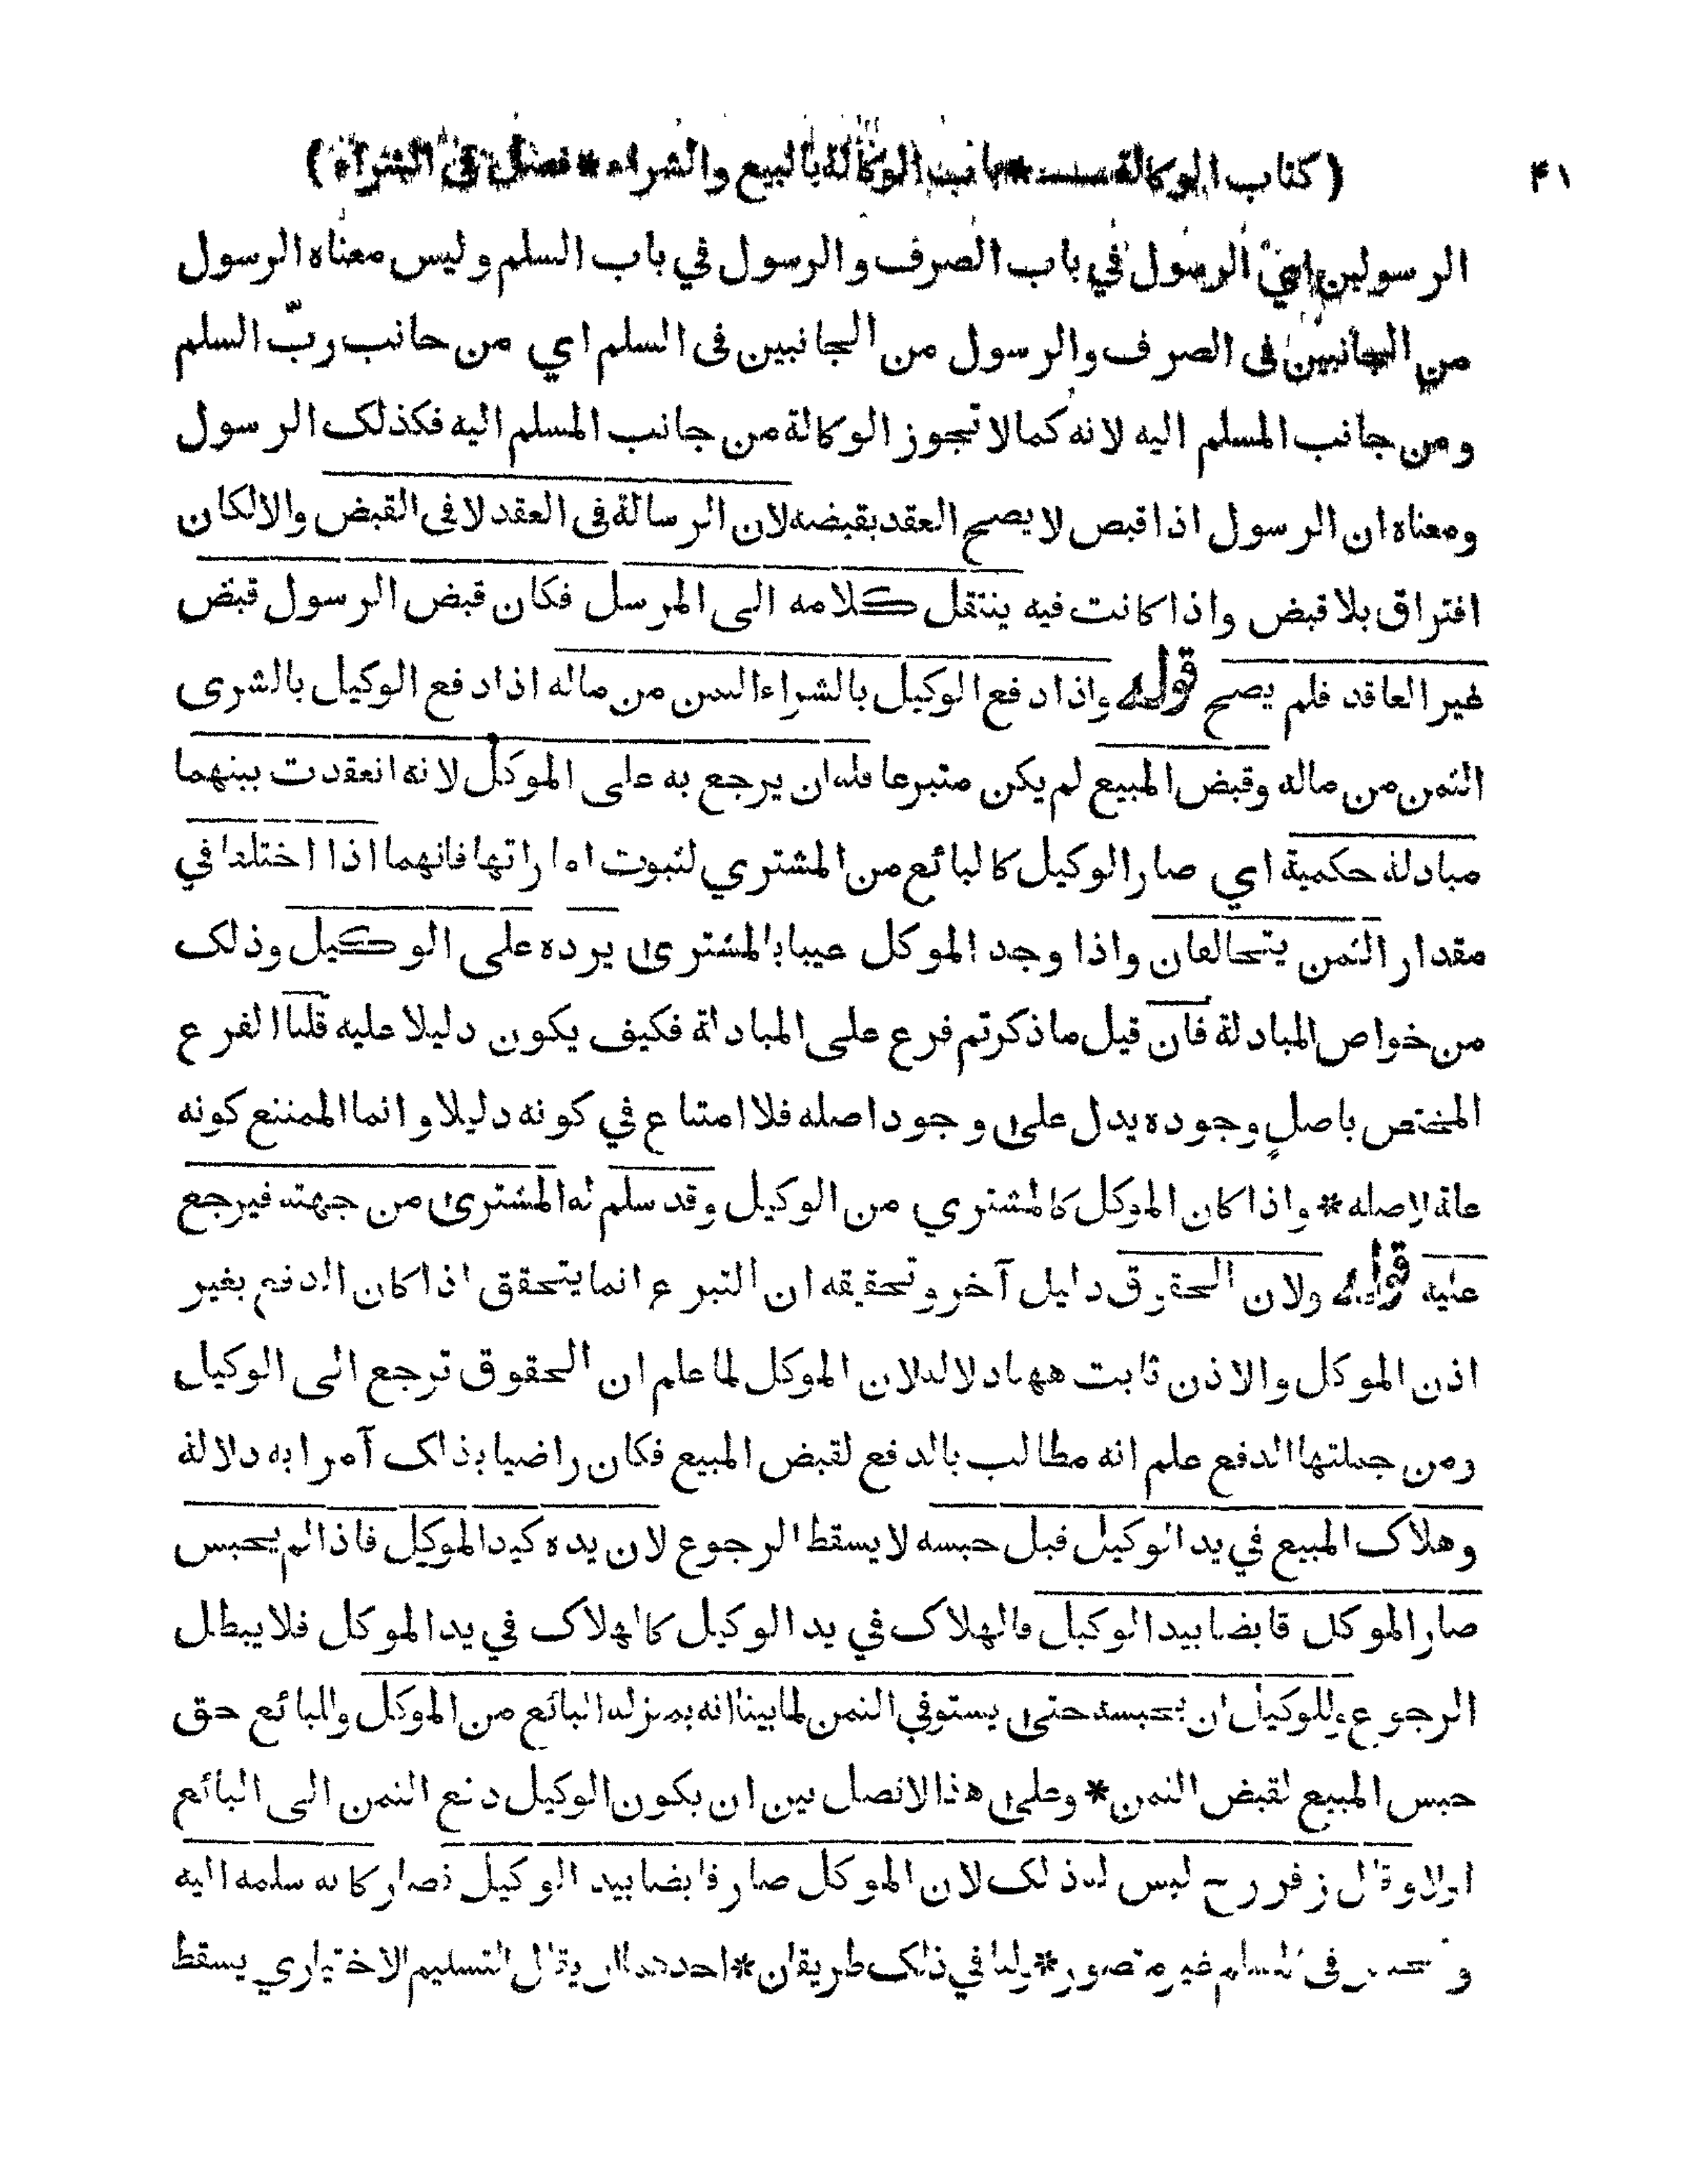 ۴۱ (كتاب الوكالة * باب الوكالة بالبيع والشراء * فصل في الشراء)
الرسولين اي الرسول في باب الصرف والرسول في باب السلم وليس معناه الرسول
من الجانبين فى الصرف والرسول من الجانبين فى السلم اي من جانب ربّ السلم
ومن جانب المسلم اليه لانه كما لا تجوز الوكالة من جانب المسلم اليه فكذلك الرسول
ومعناه ان الرسول اذا قبض لا يصح العقد بقبضه لان الرسالة فى العقد لا فى القبض والا لكان
افتراق بلا قبض واذا كانت فيه ينتقل كلامه الى المرسل فكان قبض الرسول قبض
غير العاقد فلم يصح قوله واذا دفع الوكيل بالشراء الثمن من ماله اذا دفع الوكيل بالشرى
الثمن من ماله وقبض المبيع لم يكن متبرعا فله ان يرجع به على الموكل لانه انعقدت بينهما
مبادلة حكمية اي صار الوكيل كالبائع من المشتري لثبوت اماراتها فانهما اذا اختلفا في
مقدار الثمن يتحالفان واذا وجد الموكل عيبا بالمشترى يرده على الوكيل وذلك
من خواص المبادلة فان قيل ما ذكرتم فرع على المبادلة فكيف يكون دليلا عليه قلنا الفرع
المختص باصلٍ وجوده يدل على وجود اصله فلا امتناع في كونه دليلا وانما الممتنع كونه
علة لاصله * واذا كان الموكل كالمشتري من الوكيل وقد سلم له المشترى من جهته فيرجع
عليه قوله ولان الحقوق دليل آخر وتحقيقه ان التبرع انما يتحقق اذا كان الدفع بغير
اذن الموكل والاذن ثابت ههنا دلالة لان الموكل لما علم ان الحقوق ترجع الى الوكيل
ومن جملتها الدفع علم انه مطالب بالدفع لقبض المبيع فكان راضيا بذلك آمرا به دلالة
وهلاك المبيع في يد الوكيل قبل حبسه لا يسقط الرجوع لان يده كيد الموكل فاذا لم يحبس
صار الموكل قابضا بيد الوكيل فالهلاك في يد الوكيل كالهلاك في يد الموكل فلا يبطل
الرجوع وللوكيل ان يحبسه حتى يستوفي الثمن لما بينا انه بمنزلة البائع من الموكل وللبائع حق
حبس المبيع لقبض الثمن * وعلى هذا لا فصل بين ان يكون الوكيل دفع الثمن الى البائع
او لا وقال زفر رح ليس له ذلك لان الموكل صار قابضا بيد الوكيل فصار كانه سلمه اليه
و فى غير متصور * ولنا في ذلك طريقان * احدهما ان يقال التسليم الاختياري يسقط